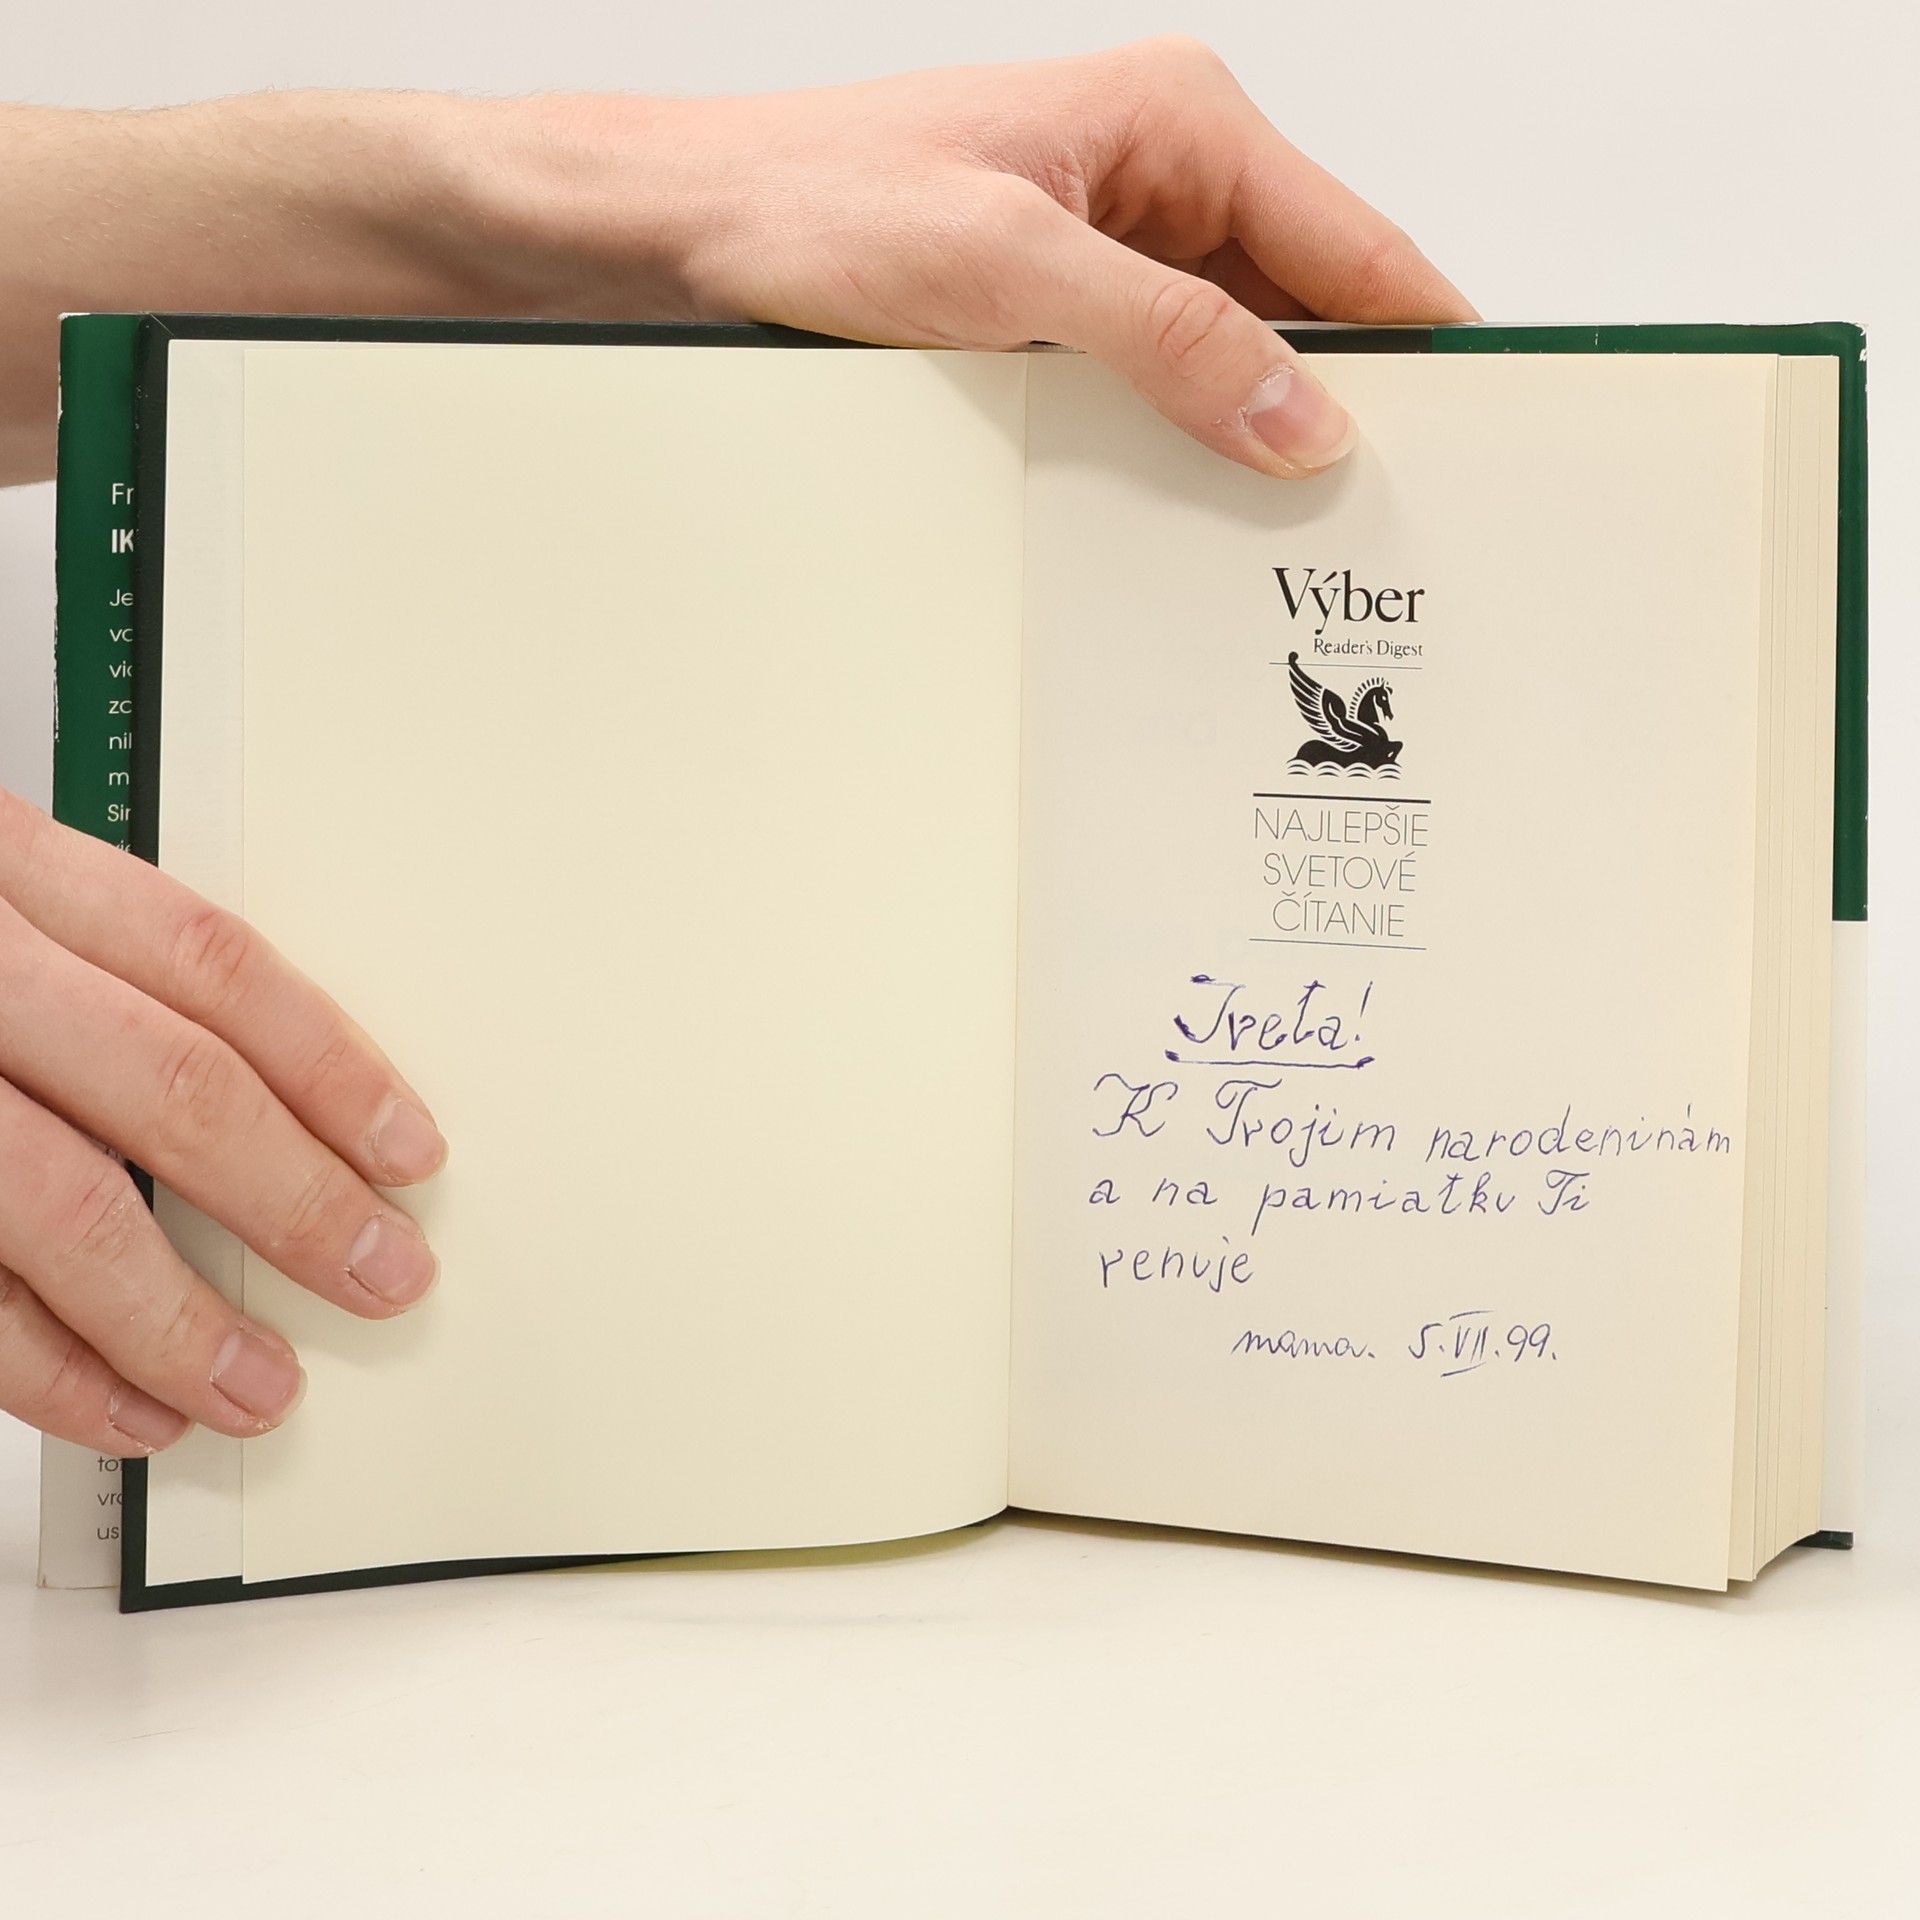 Fr
IK
Je
vo
vic
zo
nil
m
Sir
tot
vro
us
Výber
Reader's Digest
NAJLEPŠIE
SVETOVÉ
ČÍTANIE
Iveta!
K Tvojim narodeninám
a na pamiatku Ti
venuje
mama. 5.VII.99.